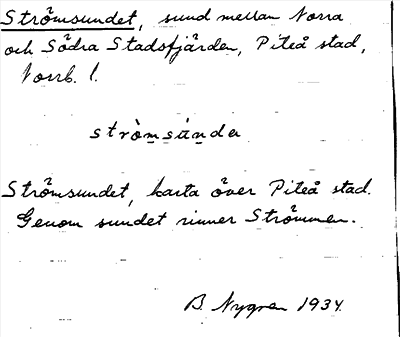 Strömsundet, sund mellan Norra
och Södra Stadsfjärden, Piteå stad,
Norrb. l.
stròm̱sǻṉdɐ
Strömsundet, karta över Piteå stad.
Genom sundet rinner Strömmen.
B. Nygren 1934.